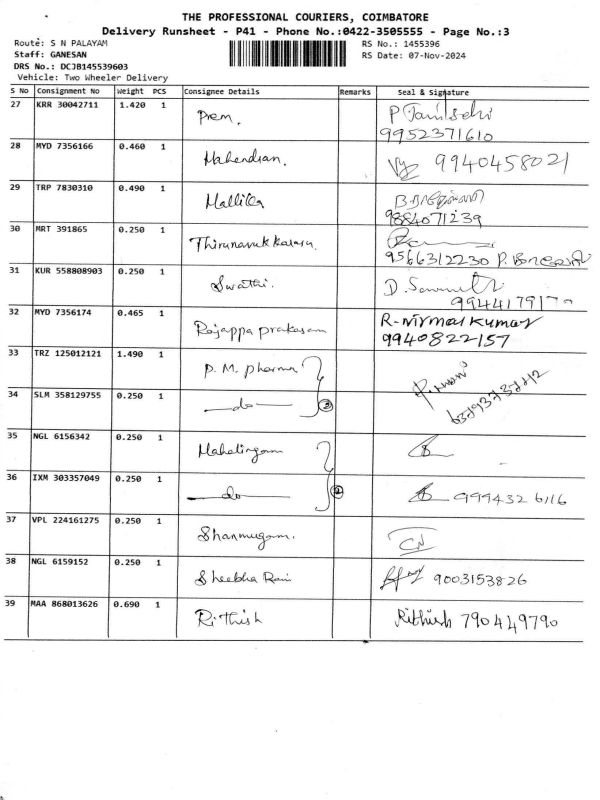 THE PROFESSIONAL COURIERS, COIMBATORE
Delivery Runsheet - P41 - Phone No.:0422-3505555 - Page No.:3
Route: S N PALAYAM
RS No.: 1455396
Staff: GANESAN
RS Date: 07-Nov-2024
DRS No.: DCJB145539603
Vehicle: Two Wheeler Delivery
S No Consignment No Weight PCS Consignee Details Remarks Seal & Signature
27 KRR 30042711 1.420 1 Prem.
9952371610
28 MYD 7356166 0.460 1 Mahendian. 9940458021
29 TRP 7830310 0.490 1 Mallika
9884071239
30 MRT 391865 0.250 1 Thirunavukkarasu
9566312230
31 KUR 558808903 0.250 1 Swathi. D.
32 MYD 7356174 0.465 1 Rajappa prakasam R-nirmal kumar
9940822157
33 TRZ 125012121 1.490 1 P. M. pharma
34 SLM 358129755 0.250 1 do
35 NGL 6156342 0.250 1 Mahalingam
36 IXM 303357049 0.250 1 do 2 9994326116
37 VPL 224161275 0.250 1 Shanmugam.
38 NGL 6159152 0.250 1 Sheebha Rani 9003153826
39 MAA 868013626 0.690 1 Rithish Rithish 790449790